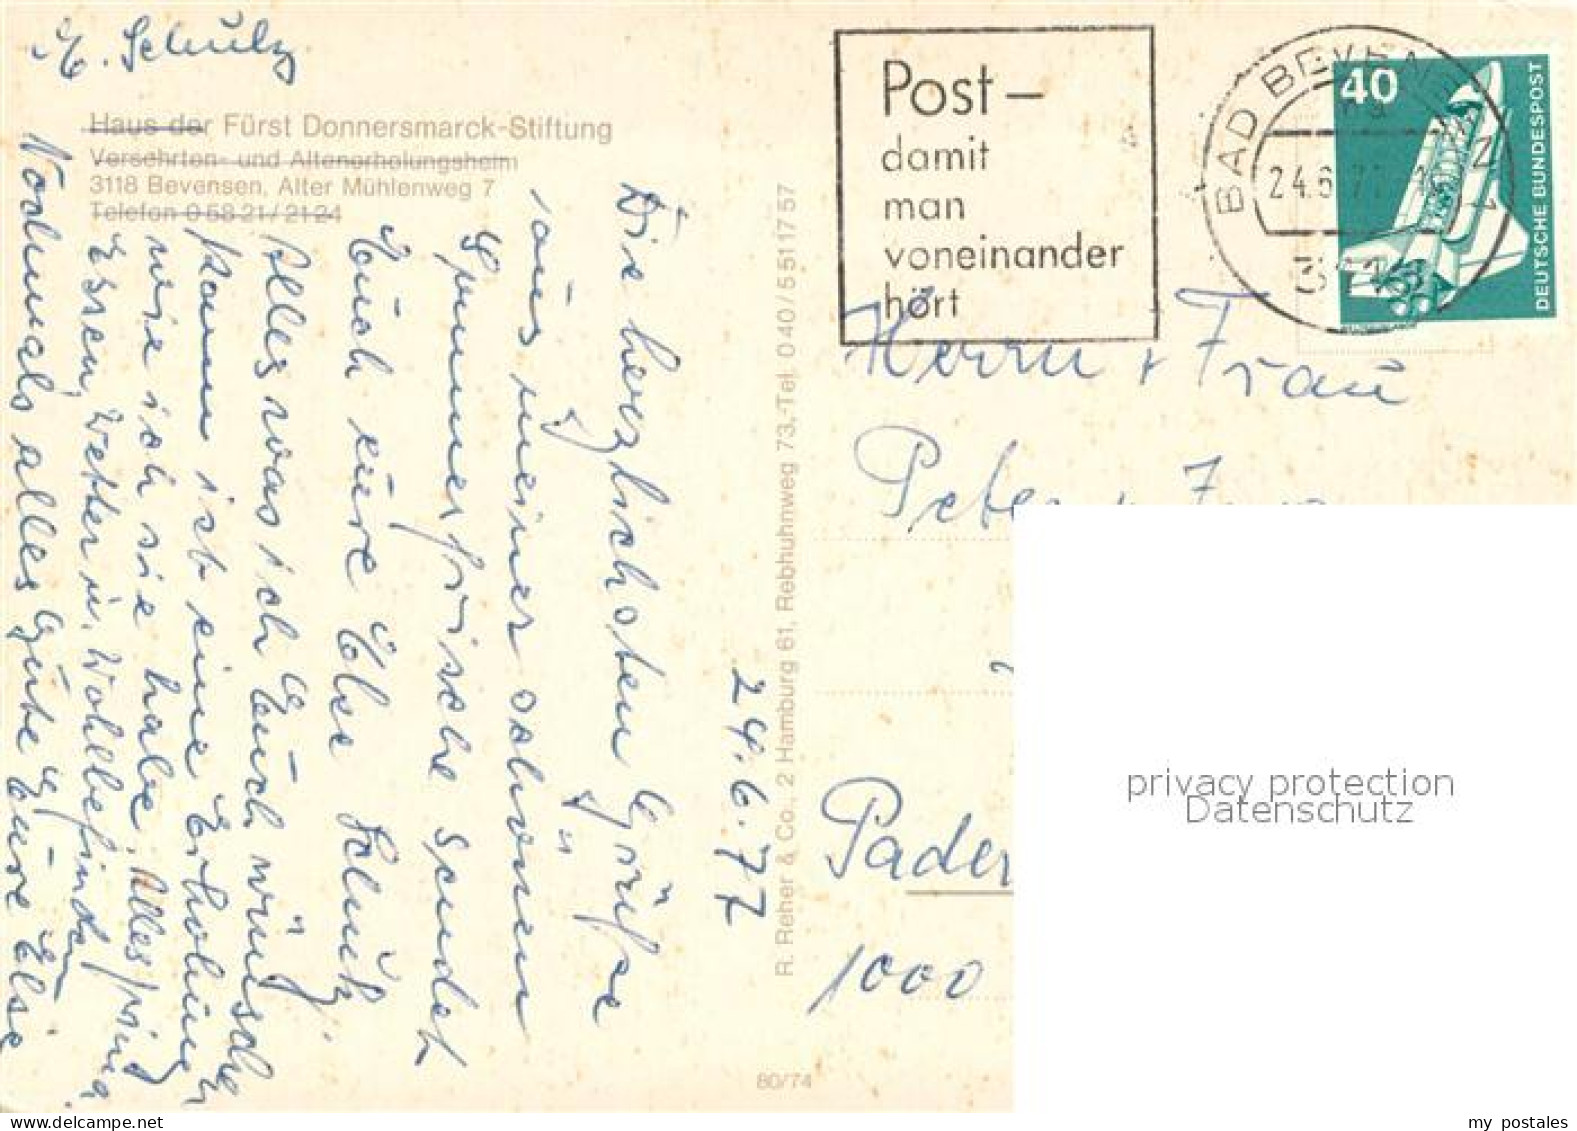 E. Schulz
Haus der Fürst Donnersmarck-Stiftung
Versehrten- und Altenerholungsheim
3118 Bevensen, Alter Mühlenweg 7
Telefon 0 58 21 / 21 24
24.6.77
Die herzlichsten Grüße
aus meiner schönen
Sommerfrische sendet
Euch eure Else Schulz
Alles was ich Euch wünsche
kann ist eine Erholung
wie ich sie habe. Alles prima
Essen, Wetter u. Wohlbefinden
Nochmals alles Gute Eure Else
R. Reher & Co., 2 Hamburg 61, Rebhuhnweg 73, Tel. 0 40 / 5 51 17 57
80/74
Post –
damit
man
voneinander
hört
BAD BEVENSEN 1
24.6.77
40
DEUTSCHE BUNDESPOST
Herrn + Frau
Peter
Pader
1000
privacy protection
Datenschutz
my postales